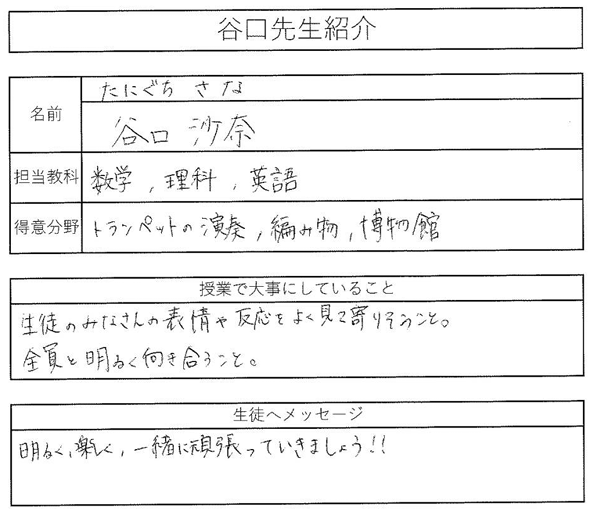 谷口先生紹介
名前
たにぐち さな
谷口 沙奈
担当教科
数学, 理科, 英語
得意分野
トランペットの演奏, 編み物, 博物館
授業で大事にしていること
生徒のみなさんの表情や反応をよく見て寄りそうこと。
全員と明るく向き合うこと。
生徒へメッセージ
明るく, 楽しく, 一緒に頑張っていきましょう!!